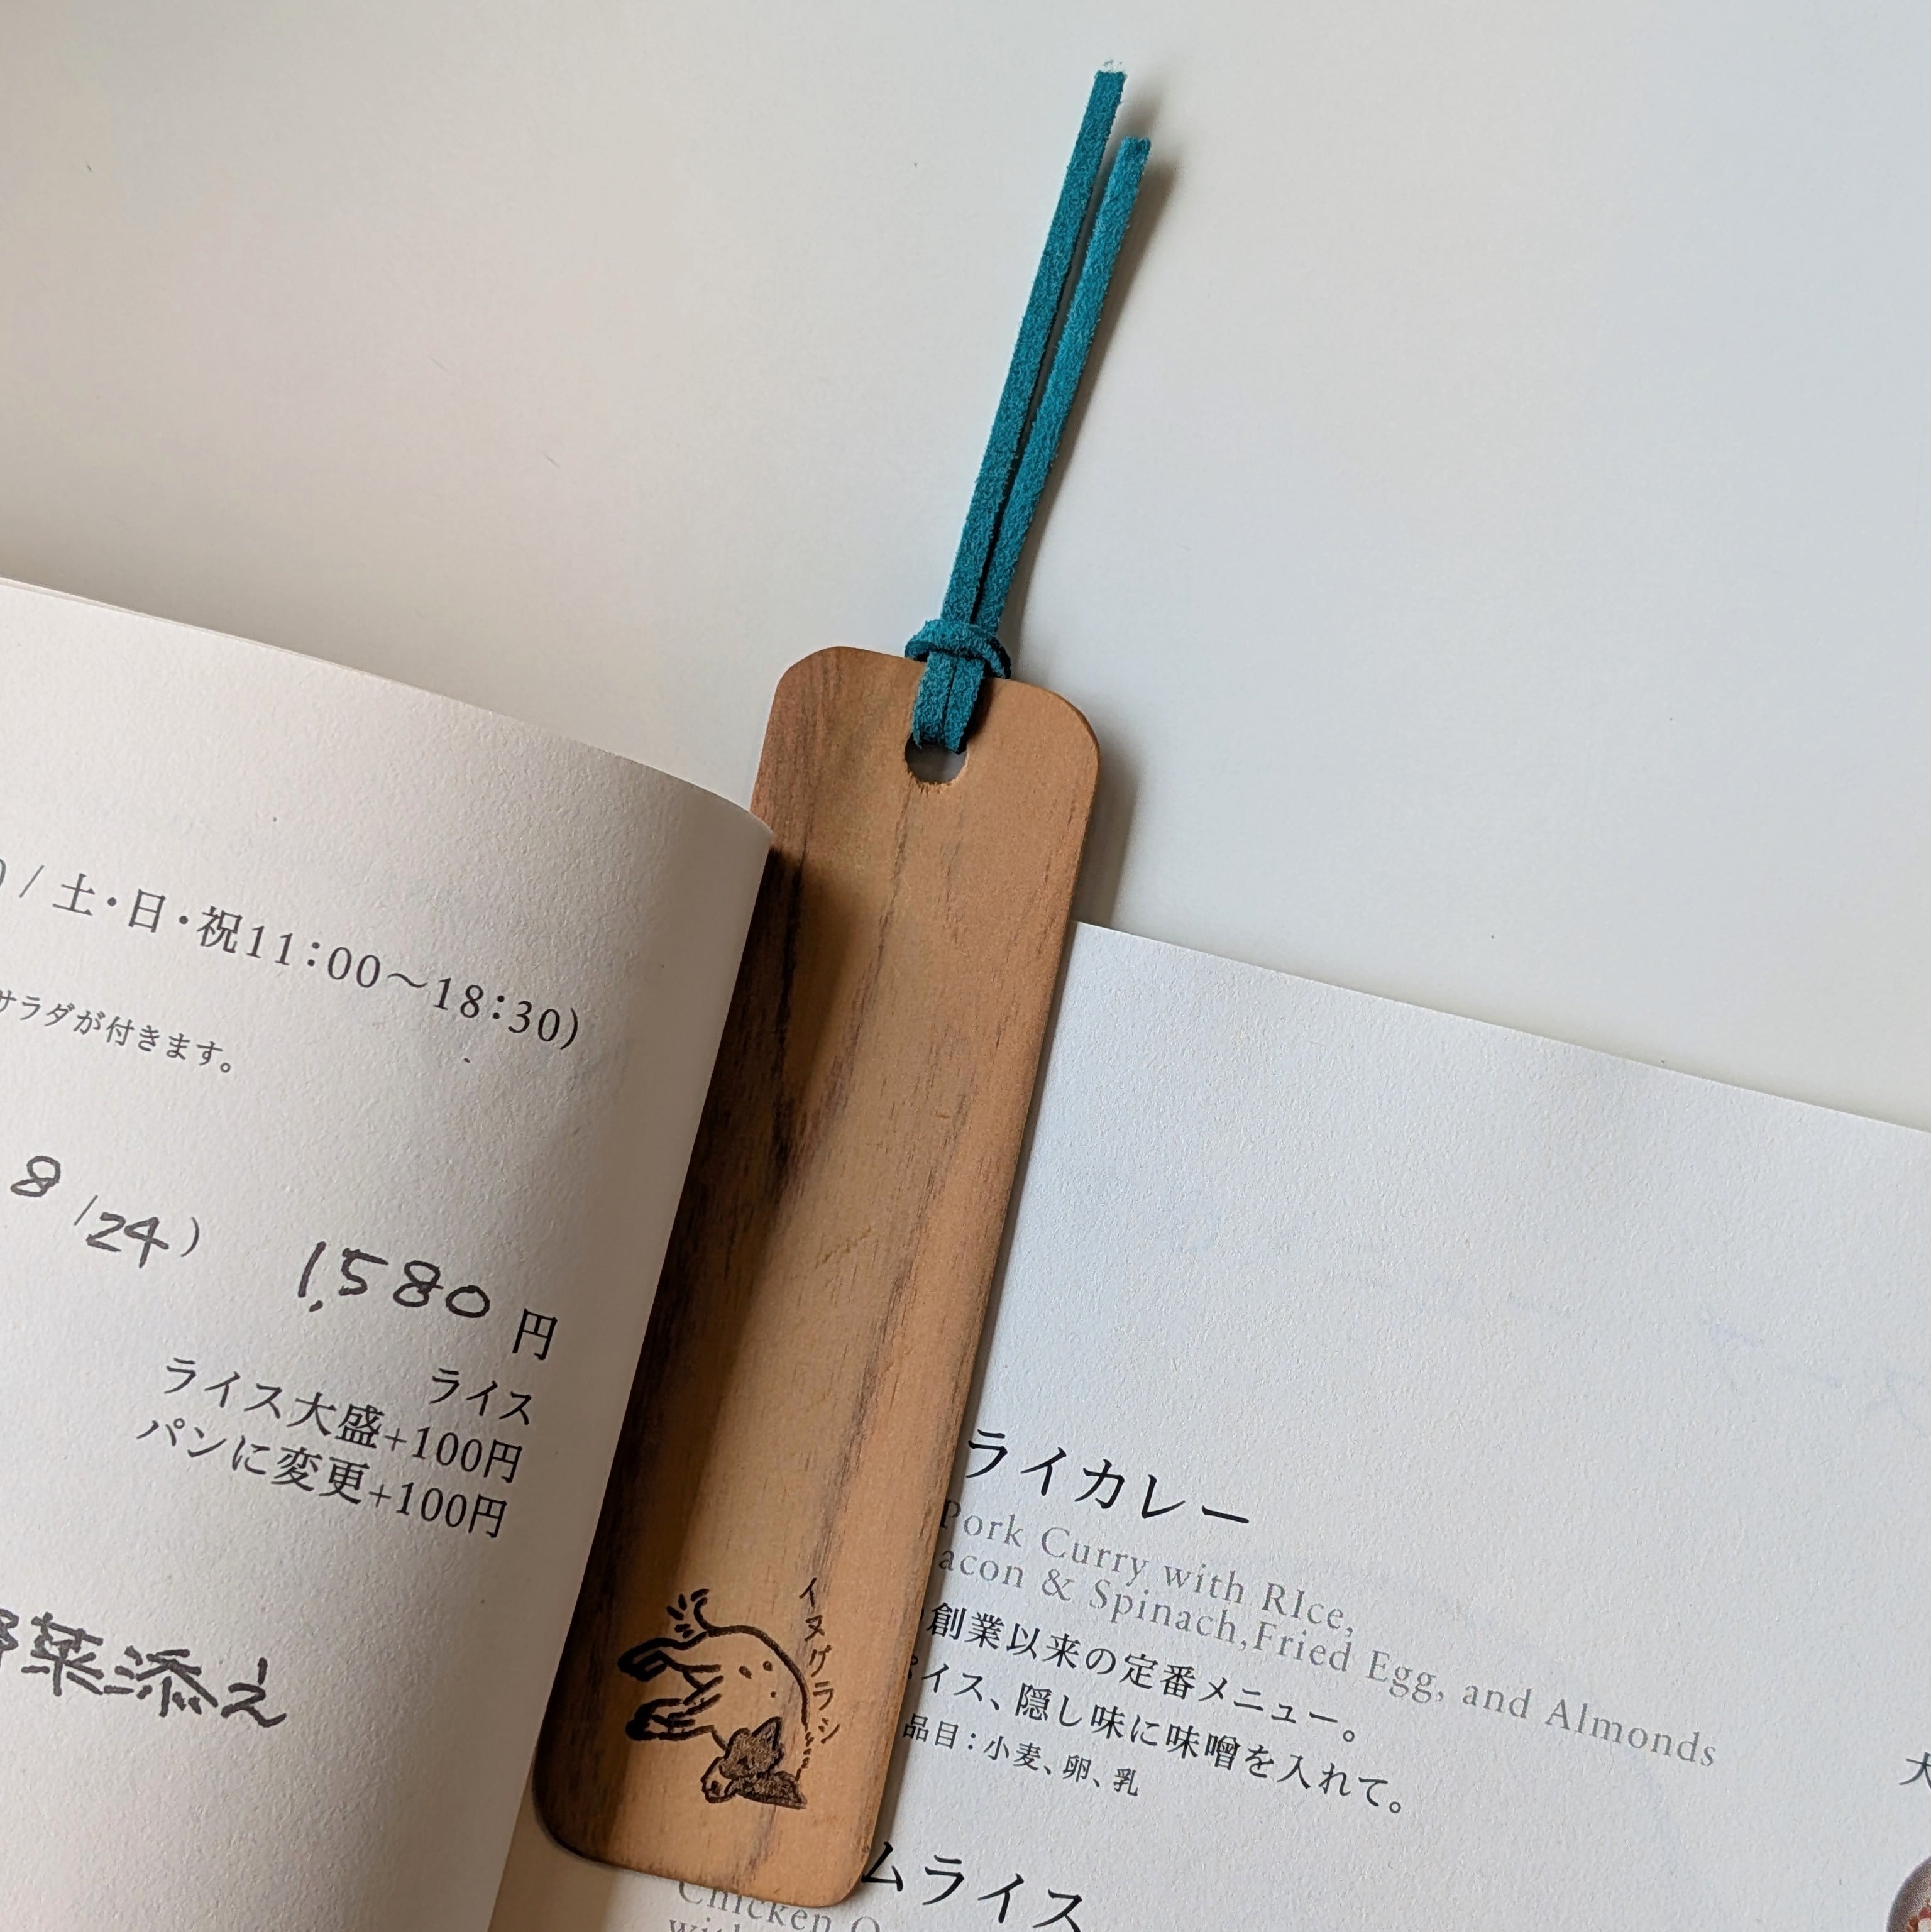 / 土・日・祝11:00〜18:30)
サラダが付きます。
8/24) 1,580円
ライス
ライス大盛+100円
パンに変更+100円
野菜添え
イヌグラシ
ライカレー
Pork Curry with RIce,
acon & Spinach,Fried Egg, and Almonds
創業以来の定番メニュー。
パイス、隠し味に味噌を入れて。
品目:小麦、卵、乳
大
ムライス
Chicken O
with